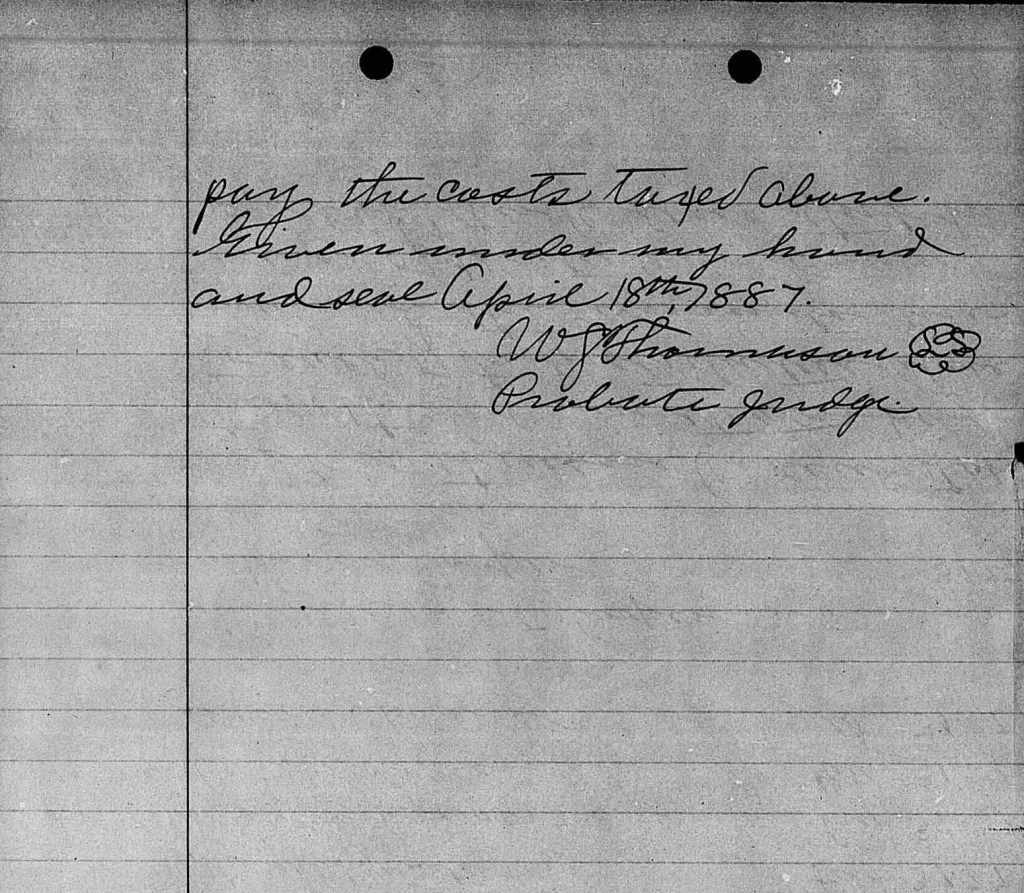 pay the costs taxed above.
Given under my hand
and seal April 18th, 1887.
W J Thomason LS
Probate Judge.